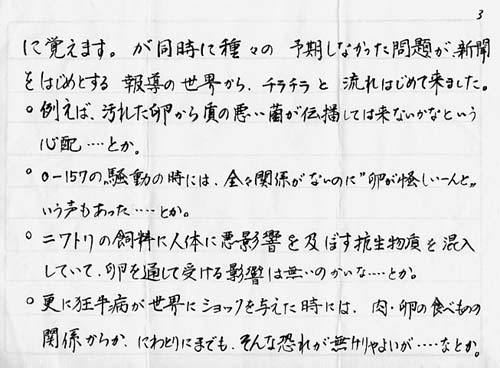 3
に覚えます。が同時に種々の 予期しなかった問題が、新聞
をはじめとする 報導の世界から、チラチラと 流れはじめて来ました。
○ 例えば、汚れた卵から質の悪い菌が伝播しては来ないかなという
心配‥‥とか。
○ O-157の騒動の時には、全々関係がないのに"卵が怪しいーんと"
いう声もあった‥‥とか。
○ ニワトリの飼料に人体に悪影響を及ぼす抗生物質を混入
していて、卵を通して受ける影響は無いのかいな‥‥とか。
○ 更に狂牛病が世界にショックを与えた時には、肉・卵の食べもの
関係からか、にわとりにまでも、そんな恐れが無けりゃよいが‥‥などか。